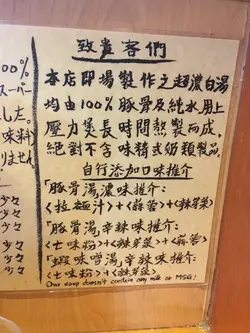 致貴客們
本店即場製作之超濃白湯
均由100%豚骨及純水用上
壓力煲長時間熬製而成,
絕對不含味精或奶類製品。
自行添加口味推介
「豚骨湯」濃味推介:
<拉麵汁>+<蒜蓉>+<辣芽菜>
「豚骨湯」辛辣味推介:
<七味粉>+<辣芽菜>+<蒜蓉>
「蝦味噌湯」辛辣味推介:
<七味粉>+<辣芽菜>
Our soup doesn't contain any milk or MSG!
00%
スーパー
した。
味料)
りません
少々
少々
少々
少々